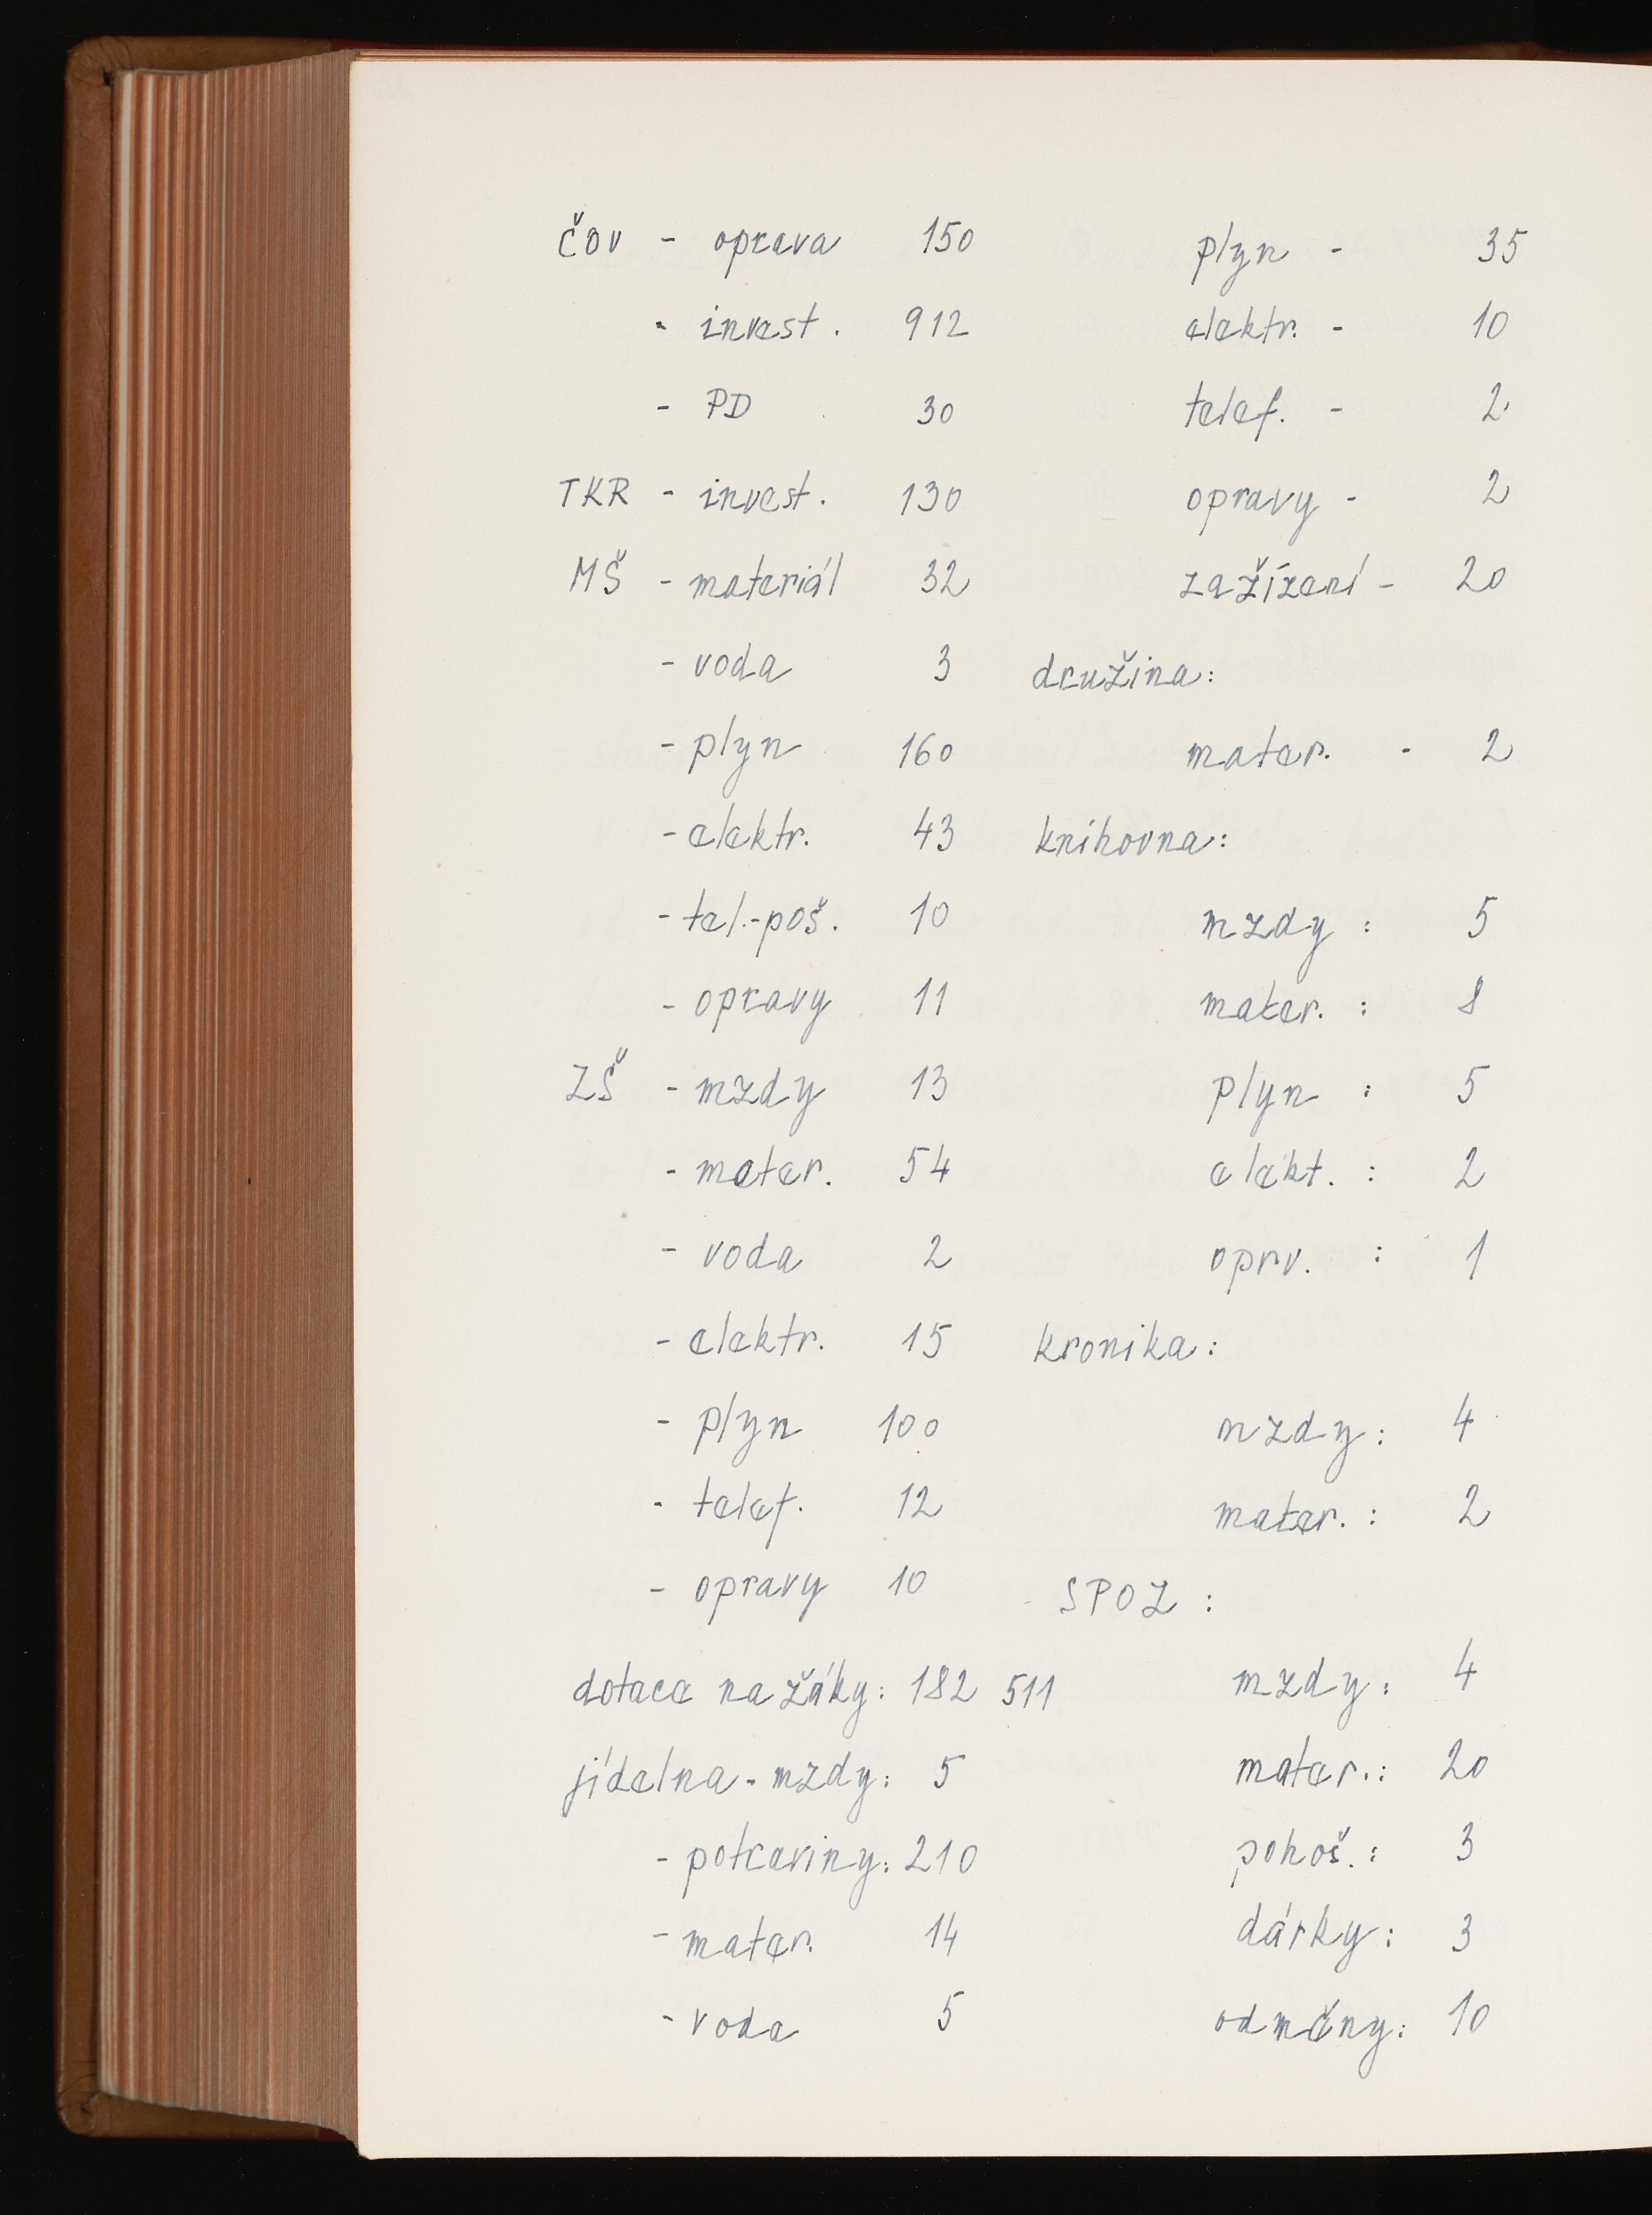 ČOV - oprava 150
- invest. 912
- PD 30
TKR - invest. 130
MŠ - materiál 32
- voda 3
- plyn 160
- elektr. 43
- tel.-poš. 10
- opravy 11
ZŠ - mzdy 13
- mater. 54
- voda 2
- elektr. 15
- plyn 100
- telef. 12
- opravy 10
dotace na žáky: 182 511
jídelna - mzdy: 5
- potraviny: 210
- mater. 14
- voda 5
plyn - 35
elektr. - 10
telef. - 2
opravy - 2
zažízení - 20
družina:
mater. - 2
knihovna:
mzdy : 5
mater. : 8
plyn : 5
elekt. : 2
oprv. : 1
kronika:
mzdy: 4
mater. : 2
SPOZ :
mzdy: 4
mater.: 20
pohoš.: 3
dárky: 3
odměny: 10